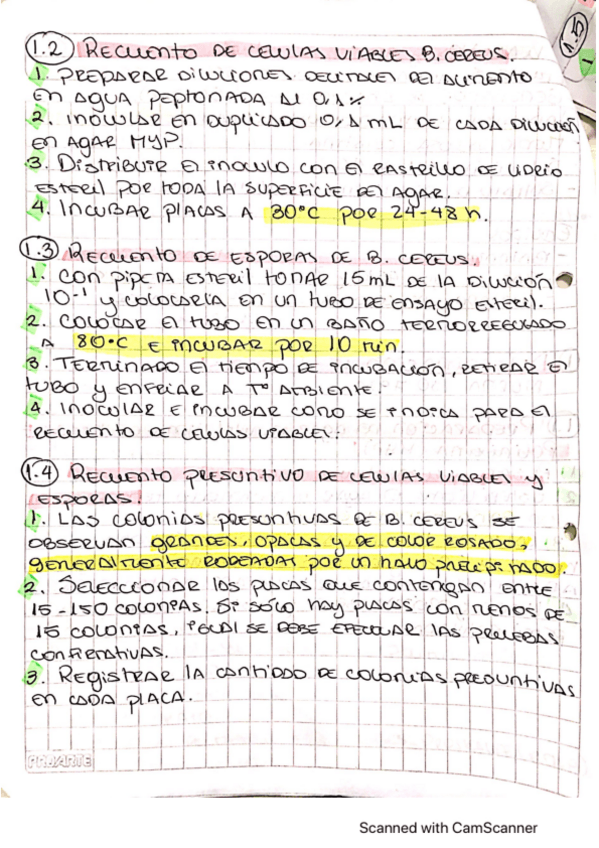 1.5
1
1.2 RECUENTO DE CELULAS VIABLES B. CEREUS.
1. PREPARAR DILUCIONES DECIMALES DEL ALIMENTO
EN AGUA PEPTONADA AL 0,1%
2. INOCULAR EN DUPLICADO 0,1 mL DE CADA DILUCIÓN
EN AGAR MYP.
3. DISTRIBUIR EL INOCULO CON EL RASTRILLO DE VIDRIO
ESTERIL POR TODA LA SUPERFICIE DEL AGAR.
4. INCUBAR PLACAS A 30°C POR 24-48 h.
1.3 RECUENTO DE ESPORAS DE B. CEREUS.
1. CON PIPETA ESTERIL TOMAR 15mL DE LA DILUCIÓN
10⁻¹ y COLOCARLA EN UN TUBO DE ENSAYO ESTERIL.
2. COLOCAR EL TUBO EN UN BAÑO TERMORREGULADO
A 80°C E INCUBAR POR 10 min.
3. TERMINADO EL TIEMPO DE INCUBACIÓN, RETIRAR EL
TUBO y ENFRIAR A T° AMBIENTE.
4. INOCULAR E INCUBAR COMO SE INDICA PARA EL
RECUENTO DE CELULAS VIABLES.
1.4 RECUENTO PRESUNTIVO DE CELULAS VIABLES y
ESPORAS.
1. LAS COLONIAS PRESUNTIVAS DE B. CEREUS SE
OBSERVAN GRANDES, OPACAS y DE COLOR ROSADO,
GENERALMENTE RODEADAS POR UN HALO PRECIPITADO.
2. SELECCIONAR LAS PLACAS QUE CONTENGAN ENTRE
15-150 COLONIAS. Si SÓLO HAY PLACAS CON MENOS DE
15 COLONIAS, IGUAL SE DEBE EFECTUAR LAS PRUEBAS
CONFIRMATIVAS.
3. REGISTRAR LA CANTIDAD DE COLONIAS PRESUNTIVAS
EN CADA PLACA.
PROARTE
Scanned with CamScanner